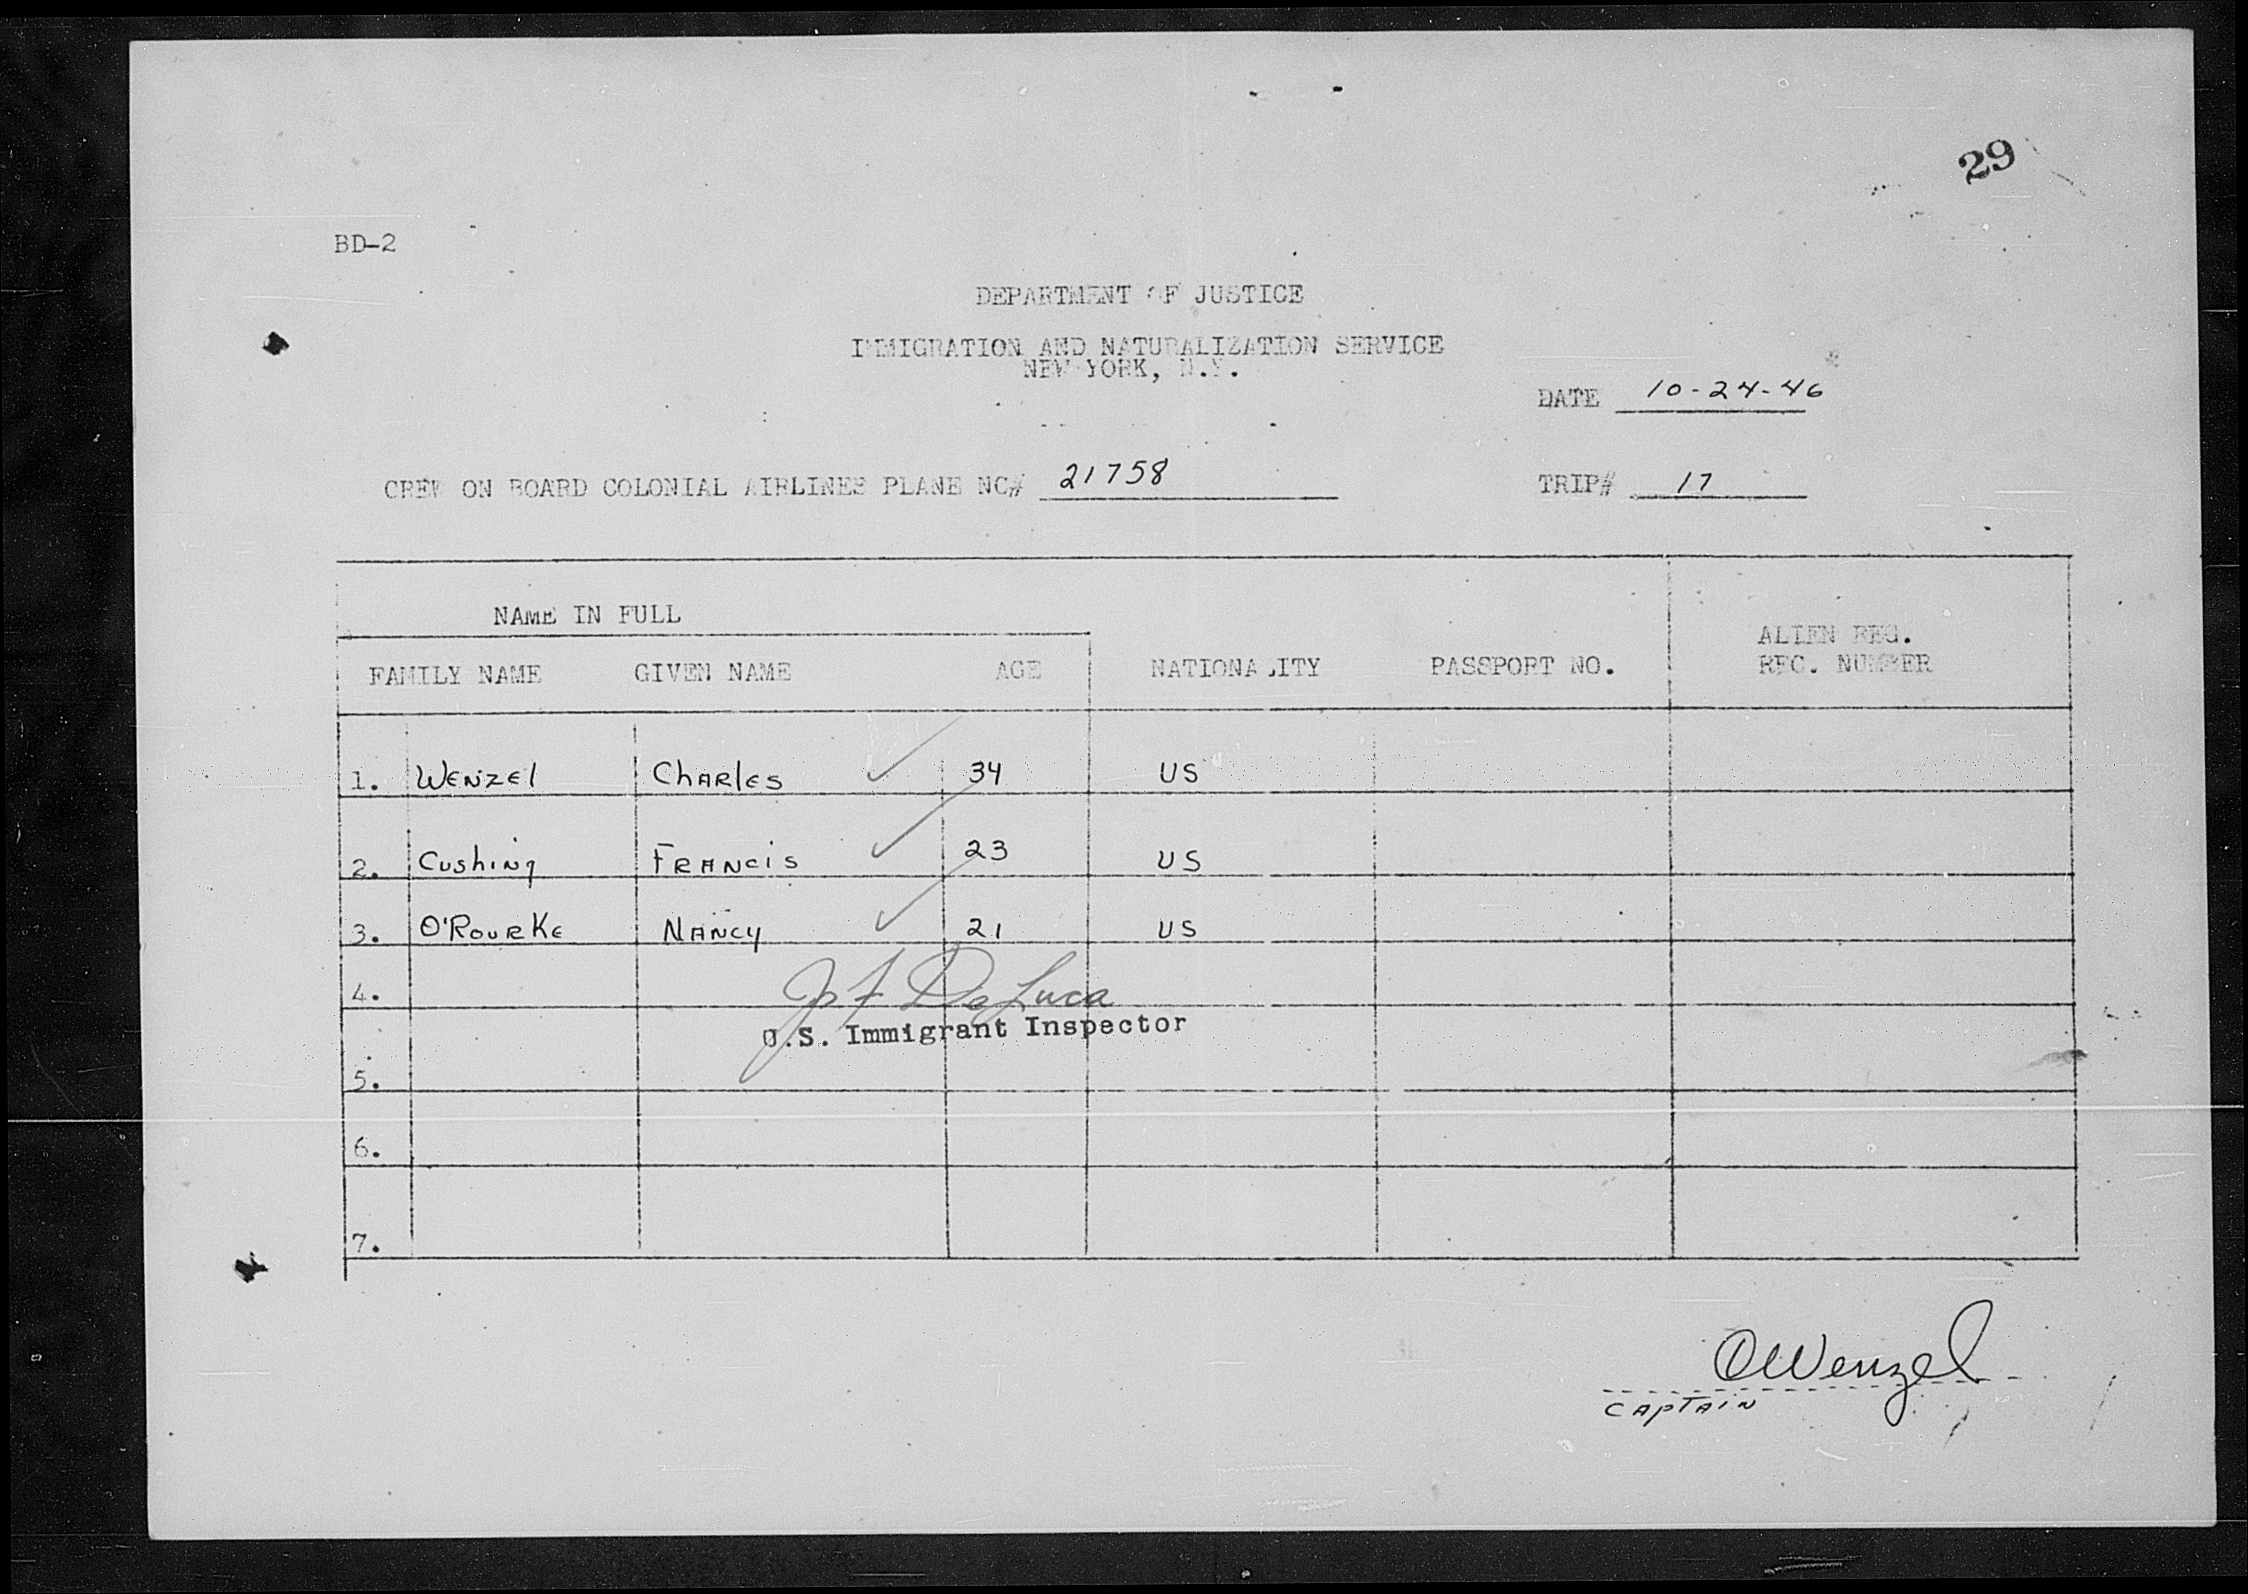 29
BD-2
DEPARTMENT OF JUSTICE
IMMIGRATION AND NATURALIZATION SERVICE
NEW YORK, N.Y.
DATE 10-24-46
CREW ON BOARD COLONIAL AIRLINES PLANE NC# 21758 TRIP# 17
NAME IN FULL
FAMILY NAME GIVEN NAME AGE NATIONALITY PASSPORT NO. ALIEN REG. REC. NUMBER
1. Wenzel Charles ✓ 34 US
2. Cushing Francis ✓ 23 US
3. O'Rourke Nancy ✓ 21 US
4.
DeLuca
U.S. Immigrant Inspector
5.
6.
7.
CWenzel
Captain